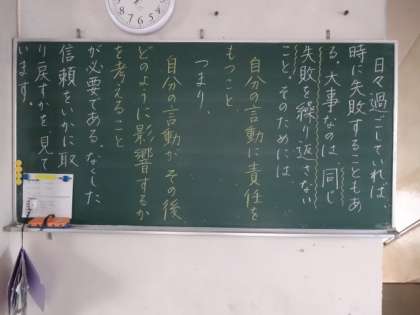 日々過ごしていれば、
時に失敗することもあ
る。大事なのは、同じ
失敗を繰り返さない
こと。そのためには
自分の言動に責任を
もつこと
つまり、
自分の言動が、その後、
どのように影響するか
を考えること
が必要である。なくした
信頼をいかに取
り戻すかを、見て
います。